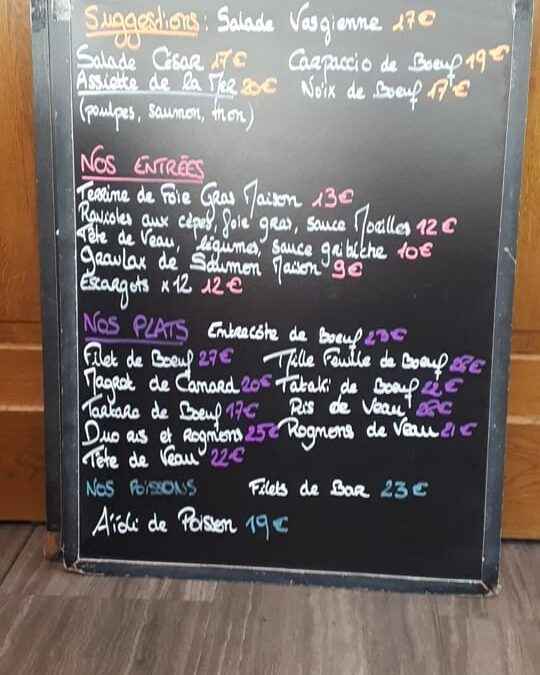 Suggestions: Salade Vosgienne 17€
Salade César 17€ Carpaccio de Boeuf 19€
Assiette de la Mer 20€ Noix de Boeuf 17€
(poulpes, saumon, thon)
NOS ENTRÉES
Terrine de Foie Gras Maison 13€
Ravioles aux cèpes, foie gras, sauce Morilles 12€
Tête de Veau, légumes, sauce gribiche 10€
Gravlax de Saumon Maison 9€
Escargots x12 12€
NOS PLATS Entrecôte de Boeuf 23€
Filet de Boeuf 27€ Mille Feuille de Boeuf 28€
Magret de Canard 20€ Tataki de Boeuf 22€
Tartare de Boeuf 17€ Ris de Veau 28€
Duo ris et Rognons 25€ Rognons de Veau 21€
Tête de Veau 22€
NOS POISSONS Filets de Bar 23€
Aïoli de Poisson 19€